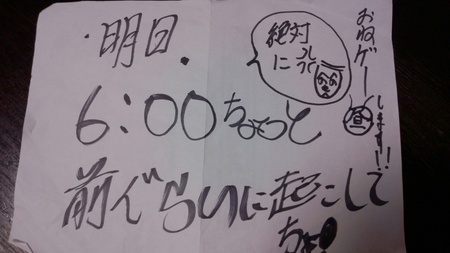 ・明日.
6:00ちょっと
前ぐらいに起こして
ちょ!
絶対
に
おねゲー
します!!